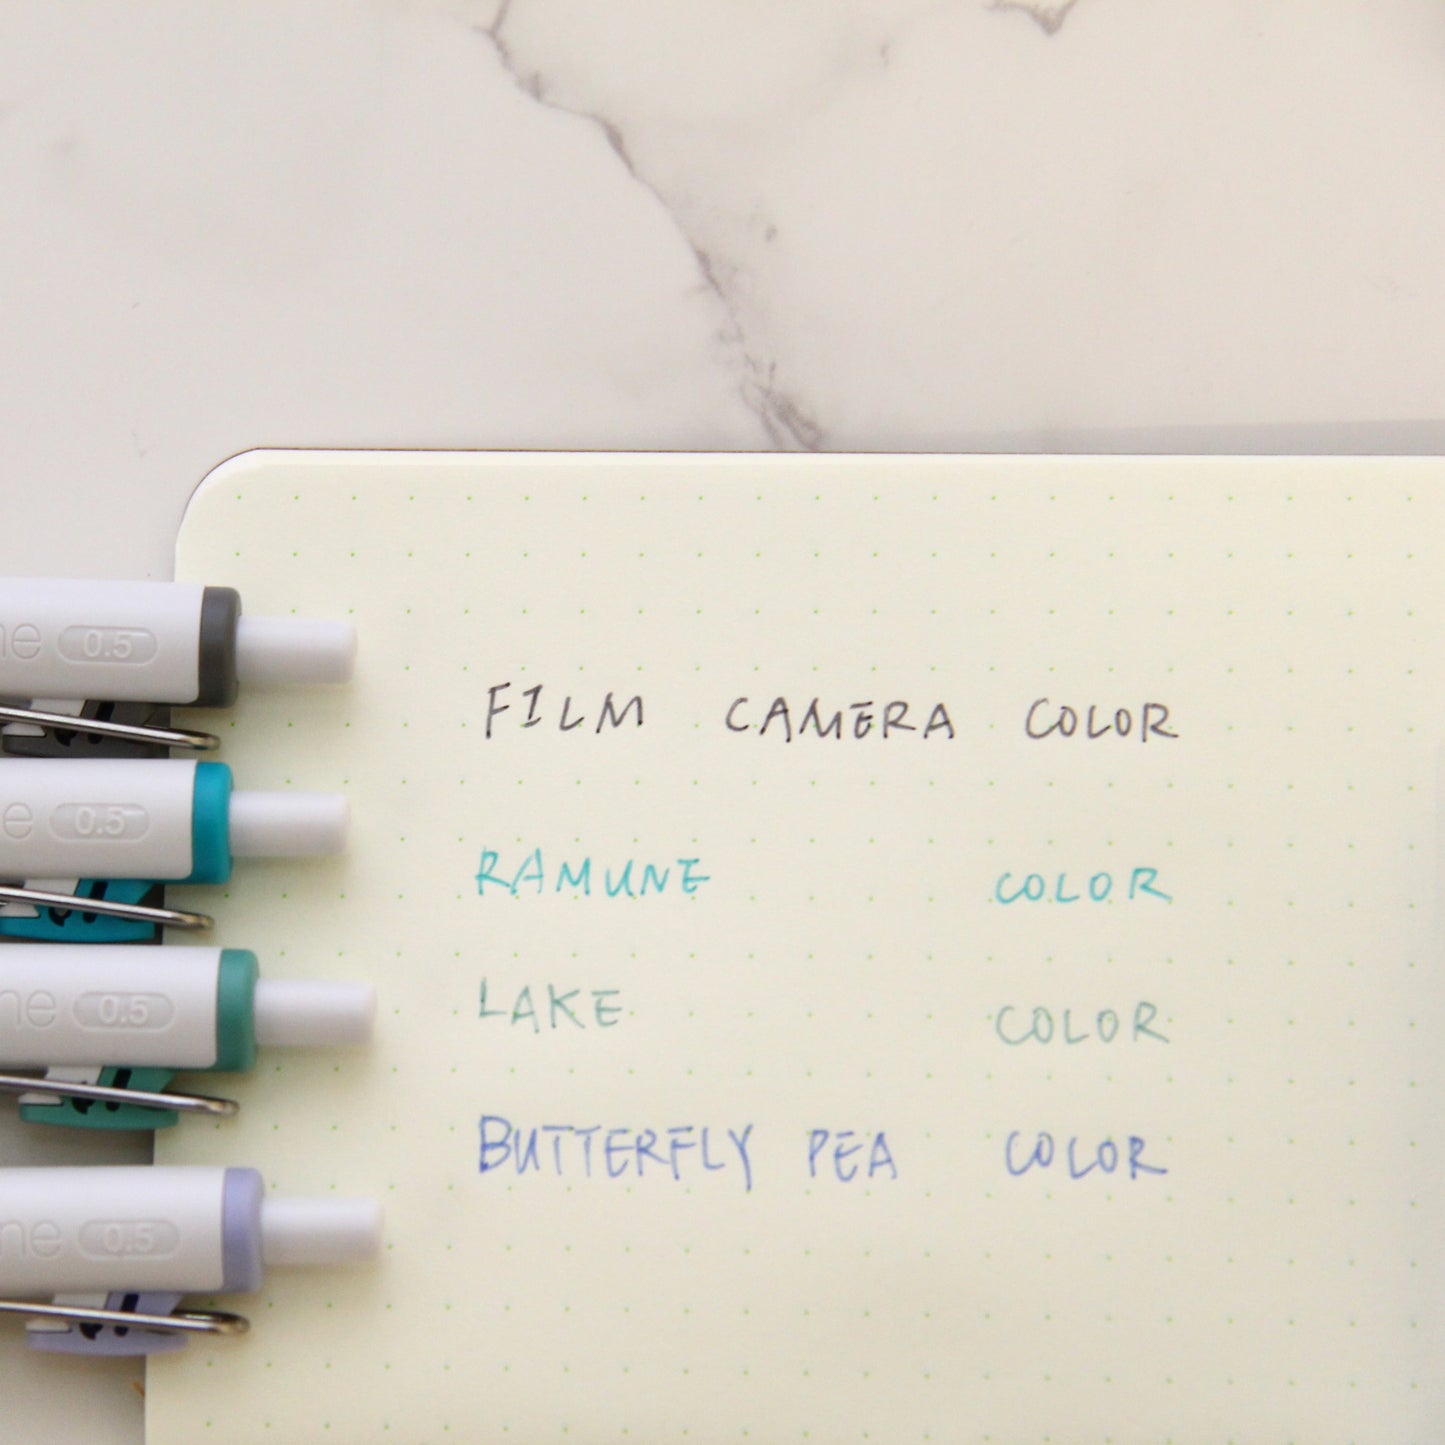 ne 0.5
FILM CAMERA COLOR
e 0.5
RAMUNE COLOR
ne 0.5
LAKE COLOR
ne 0.5
BUTTERFLY PEA COLOR